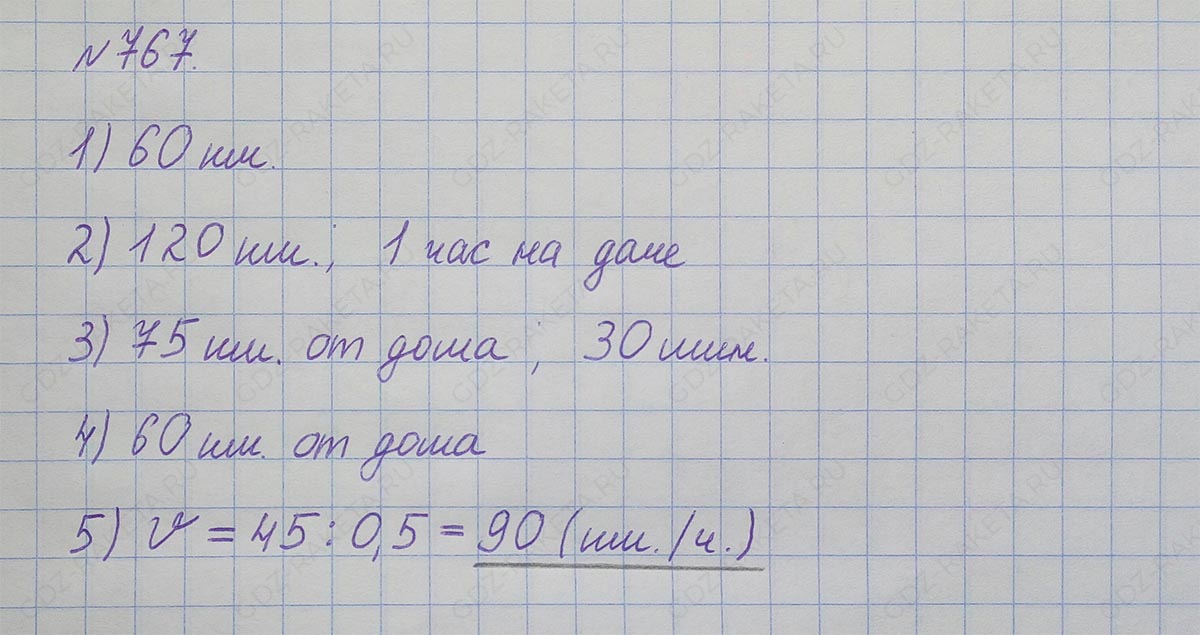 №767.
1) 60 км.
2) 120 км.; 1 час на даче
3) 75 км. от дома; 30 мин.
4) 60 км. от дома
5) v = 45 : 0,5 = 90 (км./ч.)
GDZ-RAKETA.RU